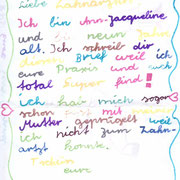 Liebe Zahnarzt
Ich bin Ann-Jacqueline
und neun Jahre
alt. Ich schreib dir
diesen Brief weil ich
eure Praxis und euch
total super find!
ich hai mich sogar
schon mit meiner
Mutter geprügelt weil
ich nicht zum Zahn-
artzt konnte.
eure